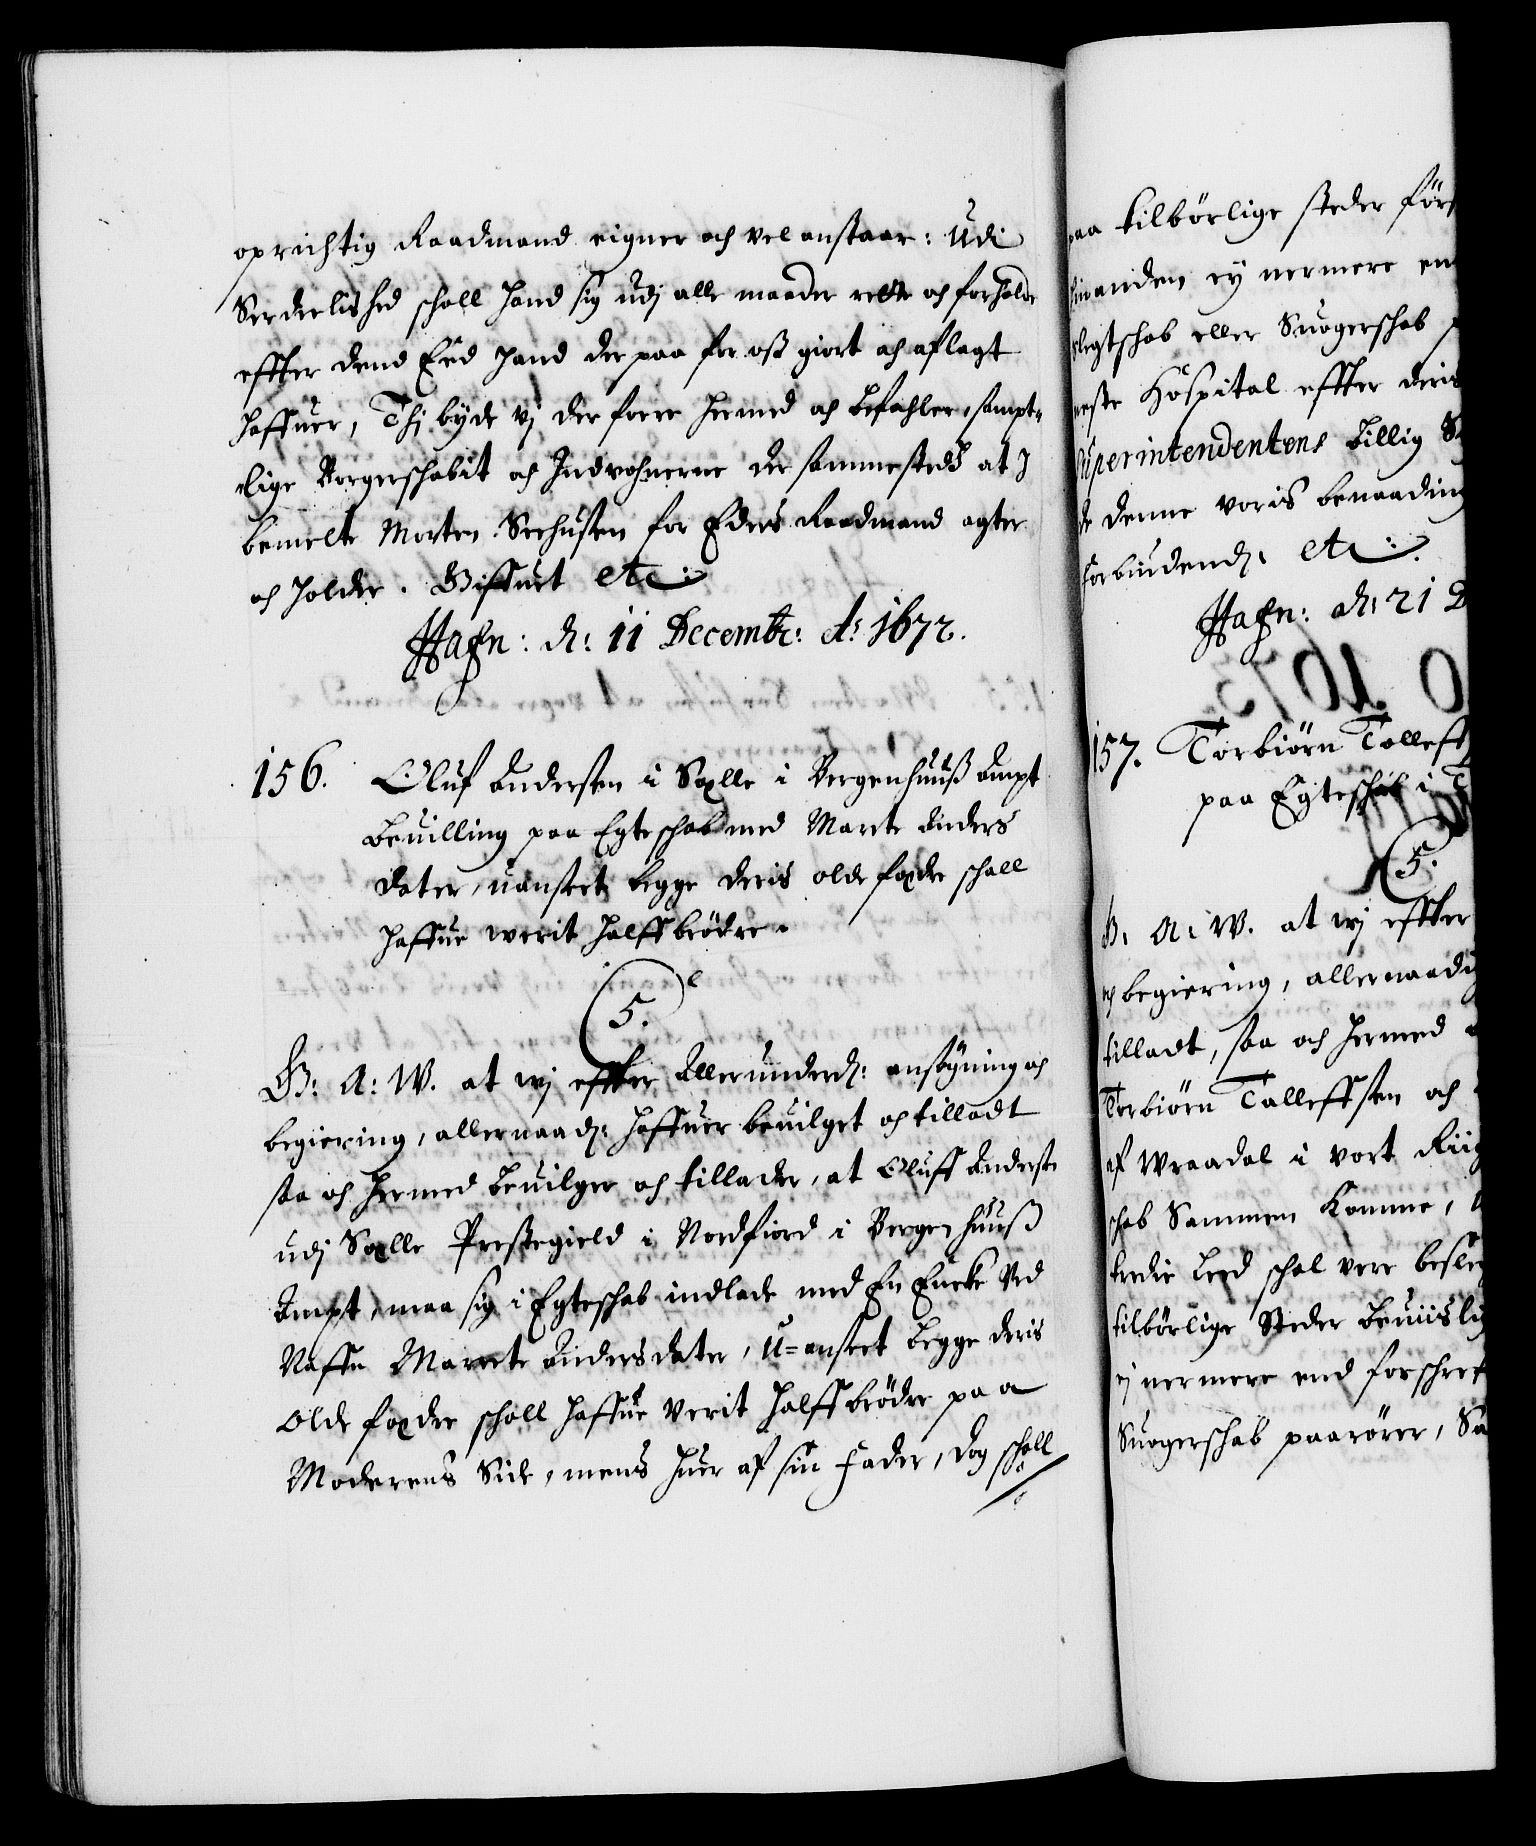 oprichtig Raadmand eigner och vel anstaar: Udi
Serdeelished schall hand sig udj alle maader rette och forholde
effter dend Eed hand der paa for oß giort och aflagt
haffuer, Thj byde vj der forre hermed och befahler, sampt-
lige Borgerschabit och Indvohnerne der sammesteds at I
bemelte Morten Seehusen for Eders Raadmand agter
och holder. Giffuet etc:
Hafn: d: 11 Decemb: Ao 1672.
156. Oluf Andersen i Sxlle i Bergenhuuß Ampt
Beuilling paa Egteschab med Marete Anders
dater, uanseet begge deris olde foxdre schall
haffue werit halffbrödre.
5.
G: A: W. at wj effter Allerunderd: ansögning och
begiering, allernaad: haffuer beuilget och tilladt
saa och hermed beuilger och tillader, at Oluff Andersen
udj Sxlle Prestegield i Nordfiord i Bergenhuuß
Ampt, maa sig i Egteschab indlade med En Encke Ved
Naffn Marete Andersdater, U-anseet begge deris
Olde foxdre schall haffue Verit halffbrödre paa
Moderens Side, mens huer af sin Fader, dog schall
paa tilbörlige steder först
hinanden ey nermere en
slegtschab eller Suogerschab
neste Hospital effter deris
Superintendentens billig
denne voris benaading
forbindend: etc:
Hafn: d: 21 D
157. Torbiörn Tolleffs
paa Egteschab i
5.
G: A: W. at wj effter
och begiering, allernaadig
tilladt, saa och hermed
Torbiörn Talleffsen och
af Wraadal i vort Riig
schab Sammen Komme,
tredie Leed schal vere besleg
tilbörlige Steder beuiislig
ej nermere end forschref
Suogerschab paarörer, Sa